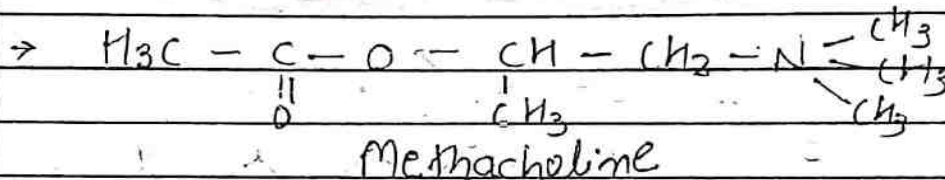 CH3
→ H3C - C - O - CH - CH2 - N - CH3
|| |
O CH3 CH3
Methacholine